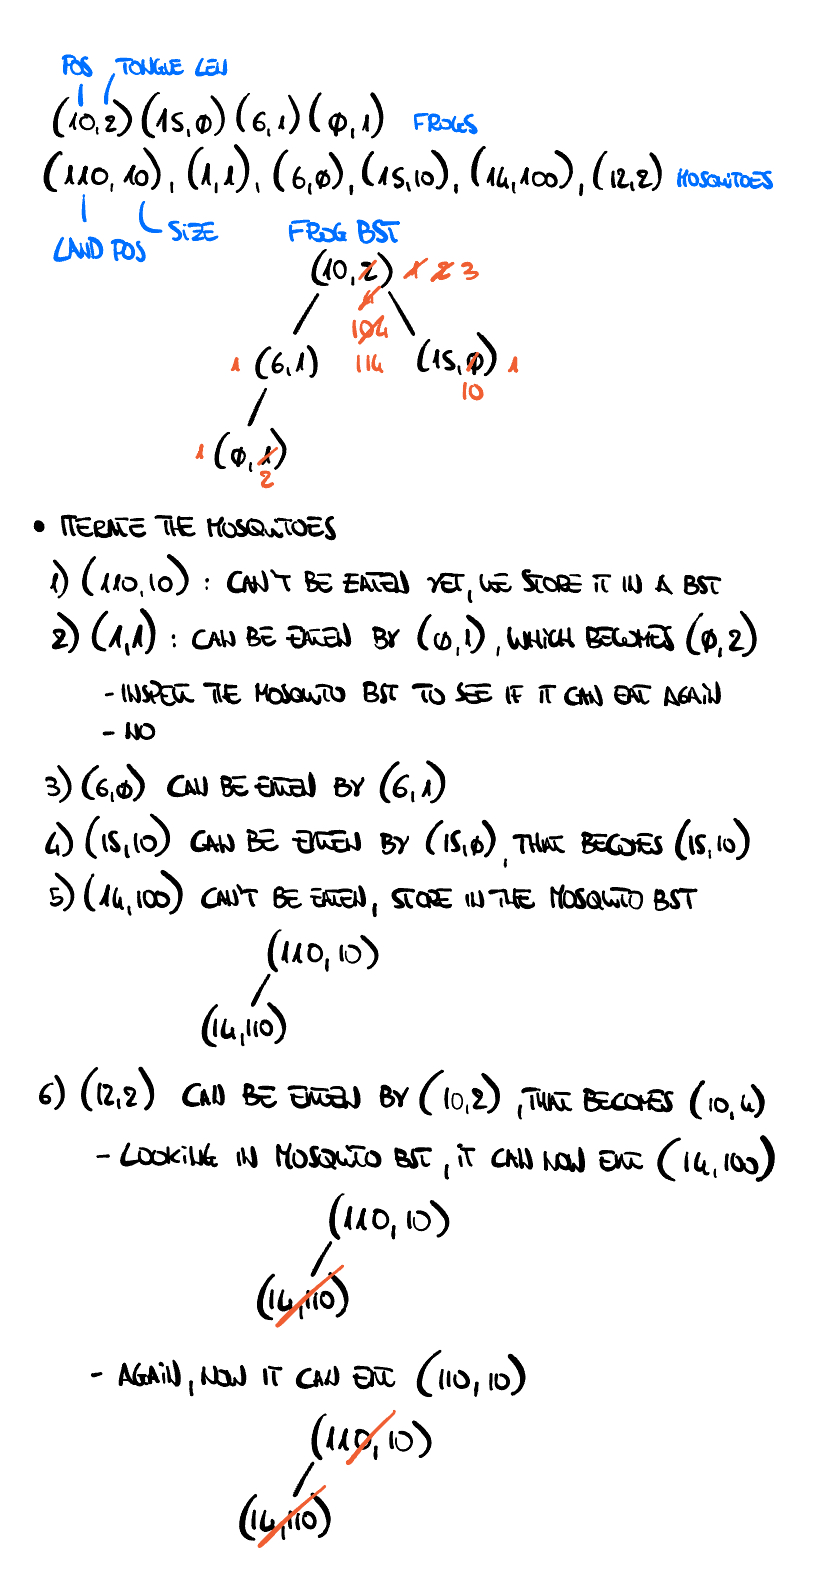 POS TONGUE LEN
(10,2) (15,0) (6,1) (0,1) FROGS
(110, 10), (1,1), (6,0), (15,10), (14,100), (12,2) MOSQUITOES
LAND POS SIZE FROG BST
(10,2) 1 2 3
104
1 (6,1) 114 (15,0) 1
10
1 (0,1)
2
• ITERATE THE MOSQUITOES
1) (110,10) : CAN'T BE EATEN YET, WE STORE IT IN A BST
2) (1,1) : CAN BE EATEN BY (0,1), WHICH BECOMES (0,2)
- INSPECT THE MOSQUITO BST TO SEE IF IT CAN EAT AGAIN
- NO
3) (6,0) CAN BE EATEN BY (6,1)
4) (15,10) CAN BE EATEN BY (15,0), THAT BECOMES (15,10)
5) (14,100) CAN'T BE EATEN, STORE IN THE MOSQUITO BST
(110, 10)
(14,110)
6) (12,2) CAN BE EATEN BY (10,2), THAT BECOMES (10,4)
- LOOKING IN MOSQUITO BST, IT CAN NOW EAT (14,100)
(110, 10)
(14,110)
- AGAIN, NOW IT CAN EAT (110, 10)
(110, 10)
(14,110)